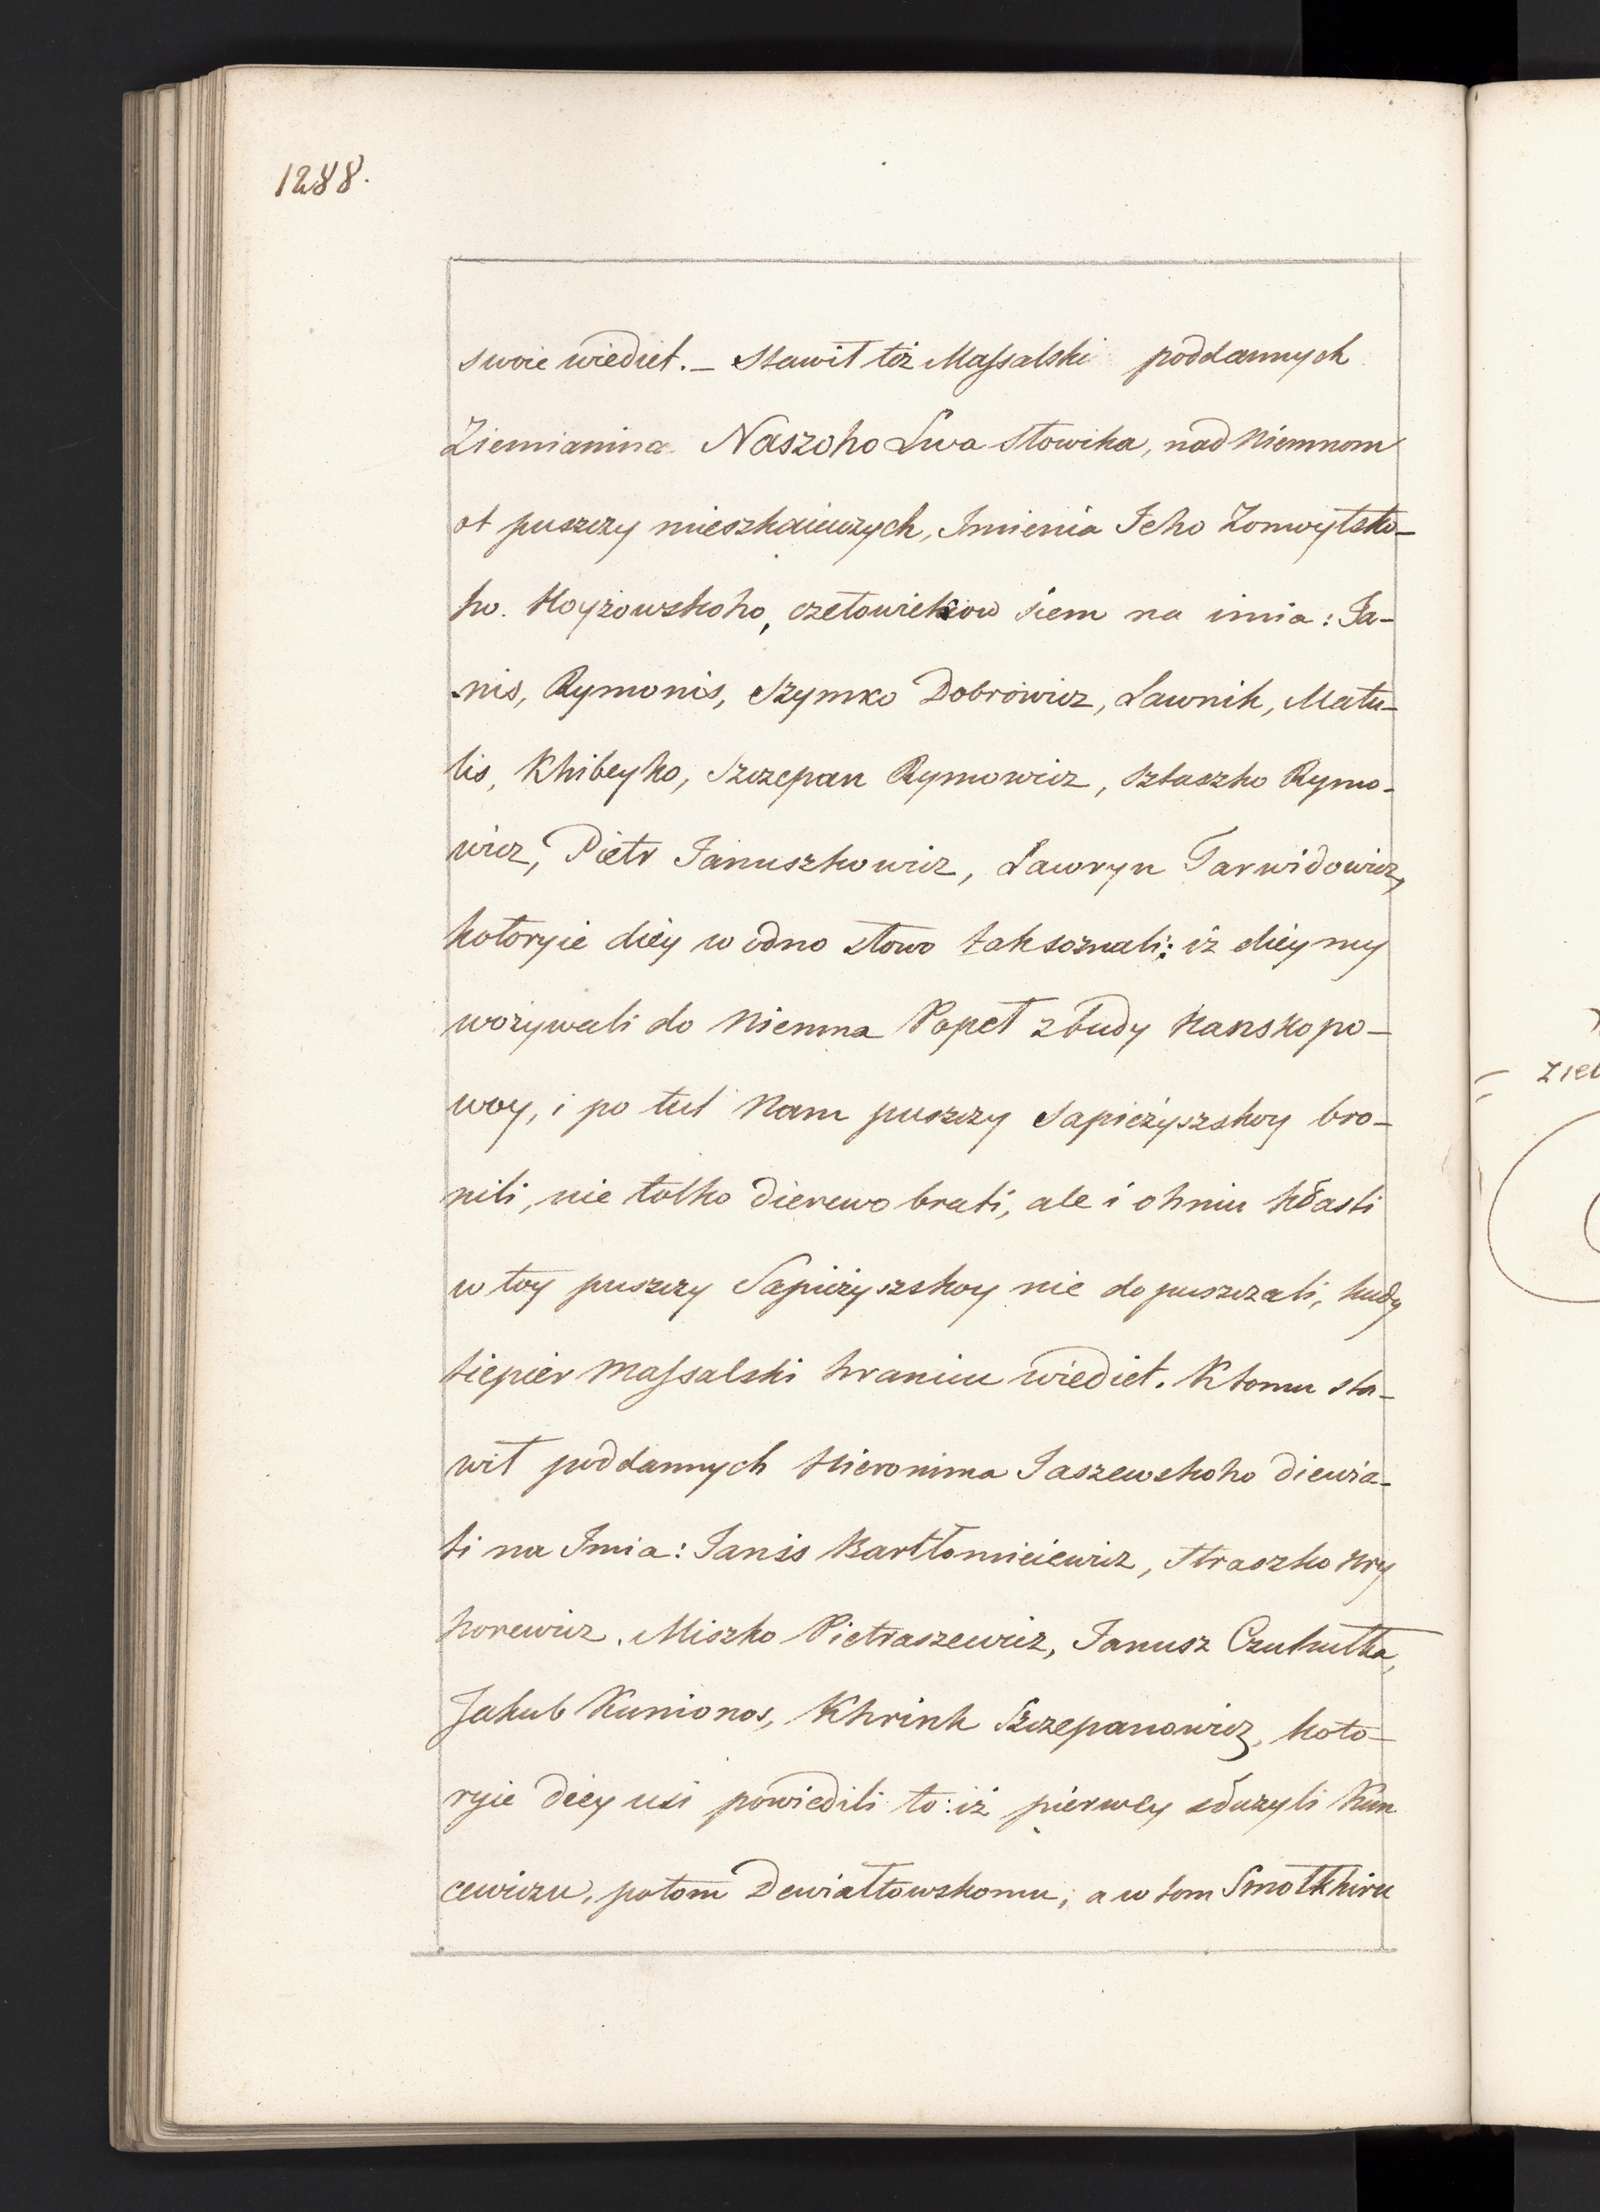 1288.
swoie wiediet. – Stawił też Massalski poddannych
Ziemianina Naszoho Lwa Słowika, nad Niemnom
ot puszczy mieszkaiuczych, Imienia Jeho Zomoytsko-
ho. Hoyżowskoho, czełowiekow siem na imia: Ja-
nis, Rymonis, Szymko Dobrowicz, Ławnik, Matu-
lis, Khibeyko, Szczepan Rymowicz, Sztaszko Rymo-
wicz, Pietr Januszkowicz, Ławryn Tarwidowicz,
kotoryie diey w odno słowo tak soznali: iż diey my
wożywali do Niemna Popeł z budy Kanskopo-
woy, i po tul Nam puszczy Sapieżyszskoy bro-
nili, nie tolko dierewo brati, ale i ohniu kłasti
w toy puszczy Sapieżyszskoy nie dopuszczali, kudy
tiepier Massalski hranicu wiediet. K tomu sta-
wił poddannych Hieronima Jaszewskoho diewia-
ti na Imia: Janis Bartłomieiewicz, Straszko Hry
horewicz, Miszko Pietraszewicz, Janusz Czukutka,
Jakub Kunionos, Khrink Szczepanowicz, koto-
ryie diey usi powiedili to: iż pierwey służyli Kun
cewiczu, potom Dewiałtowskomu, a w tom Smołkhiru
ziel